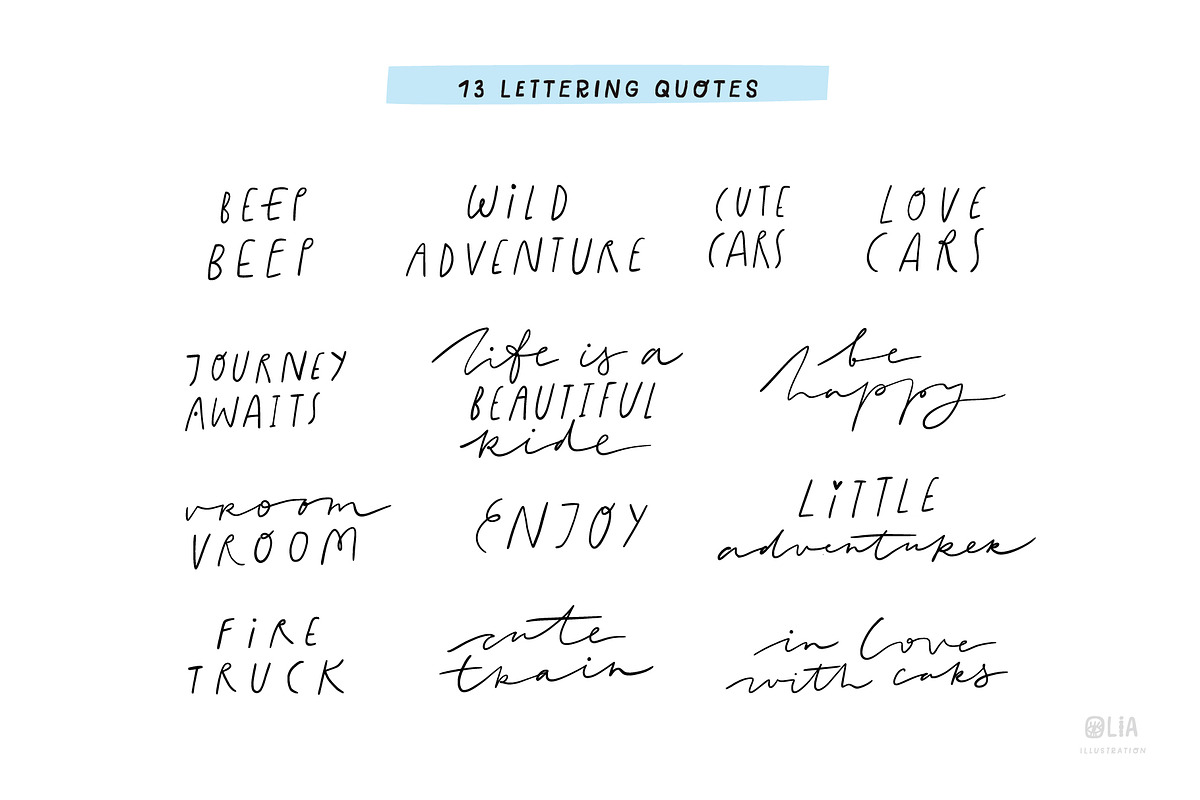 13 LETTERING QUOTES
BEEP
BEEP
WiLD
ADVENTURE
CUTE
CARS
LOVE
CARS
JOURNEY
AWAITS
life is a
BEAUTIFUL
ride
be
happy
vroom
VROOM
ENJOY
LiTTLE
adventurer
FiRE
TRUCK
cute
train
in love
with cars
OLiA
ILLUSTRATION